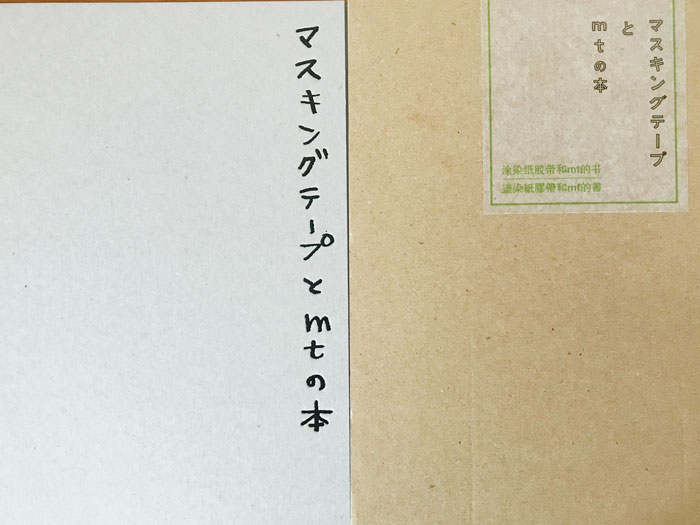 マスキングテープとmtの本
マスキングテープ
と
mtの本
涂染纸胶带和mt的书
塗染紙膠帶和mt的書